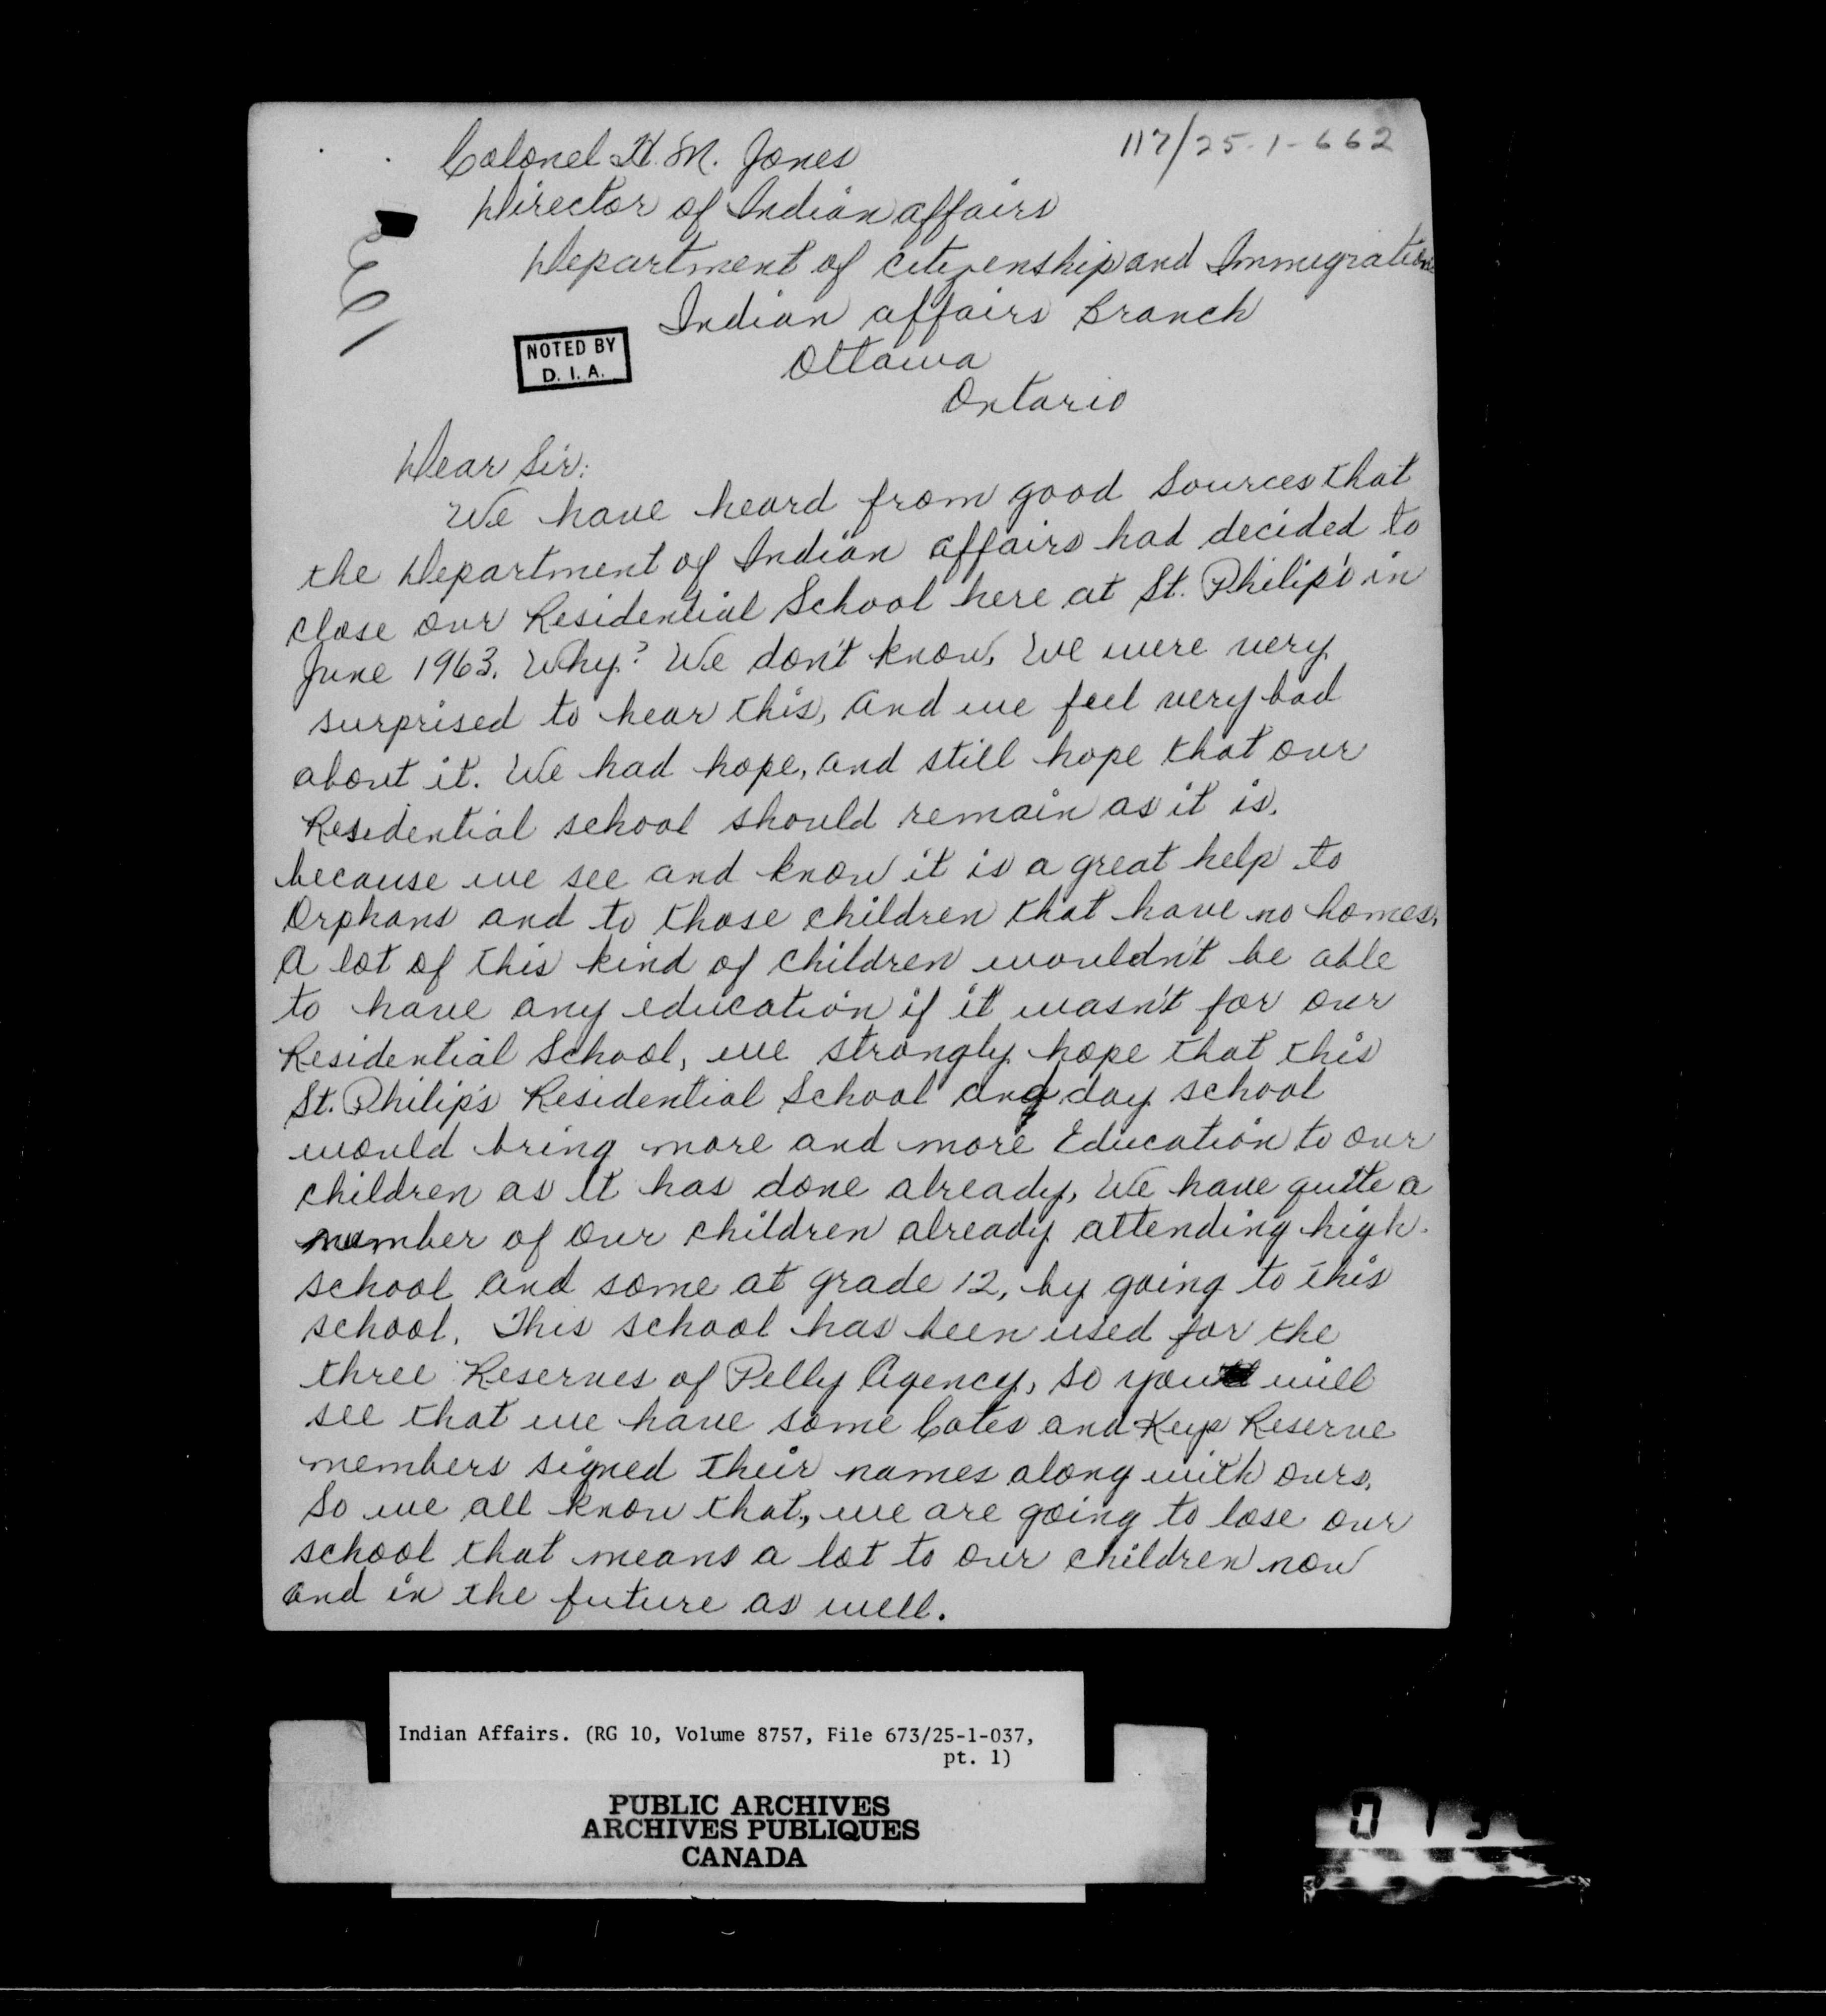 117/25-1-662
Colonel H. M. Jones
Director of Indian affairs
Department of citizenship and Immigration
Indian affairs Branch
NOTED BY
D. I. A.
Ottawa
Ontario
Dear Sir:
We have heard from good sources that
the Department of Indian affairs had decided to
close our Residential School here at St. Philip's in
June 1963. Why? We don't know. We were very
surprised to hear this, and we feel very bad
about it. We had hope, and still hope that our
Residential school should remain as it is.
because we see and know it is a great help to
Orphans and to those children that have no homes.
A lot of this kind of children wouldn't be able
to have any education if it wasn't for our
Residential School, we strongly hope that this
St. Philip's Residential School and day school
would bring more and more Education to our
children as it has done already. We have quite a
number of our children already attending high
school and some at grade 12, by going to this
school. This school has been used for the
three Reserves of Pelly Agency, so you will
see that we have some Cotes and Key Reserve
members signed their names along with ours.
So we all know that, we are going to lose our
school that means a lot to our children now
and in the future as well.
Indian Affairs. (RG 10, Volume 8757, File 673/25-1-037,
pt. 1)
PUBLIC ARCHIVES
ARCHIVES PUBLIQUES
CANADA